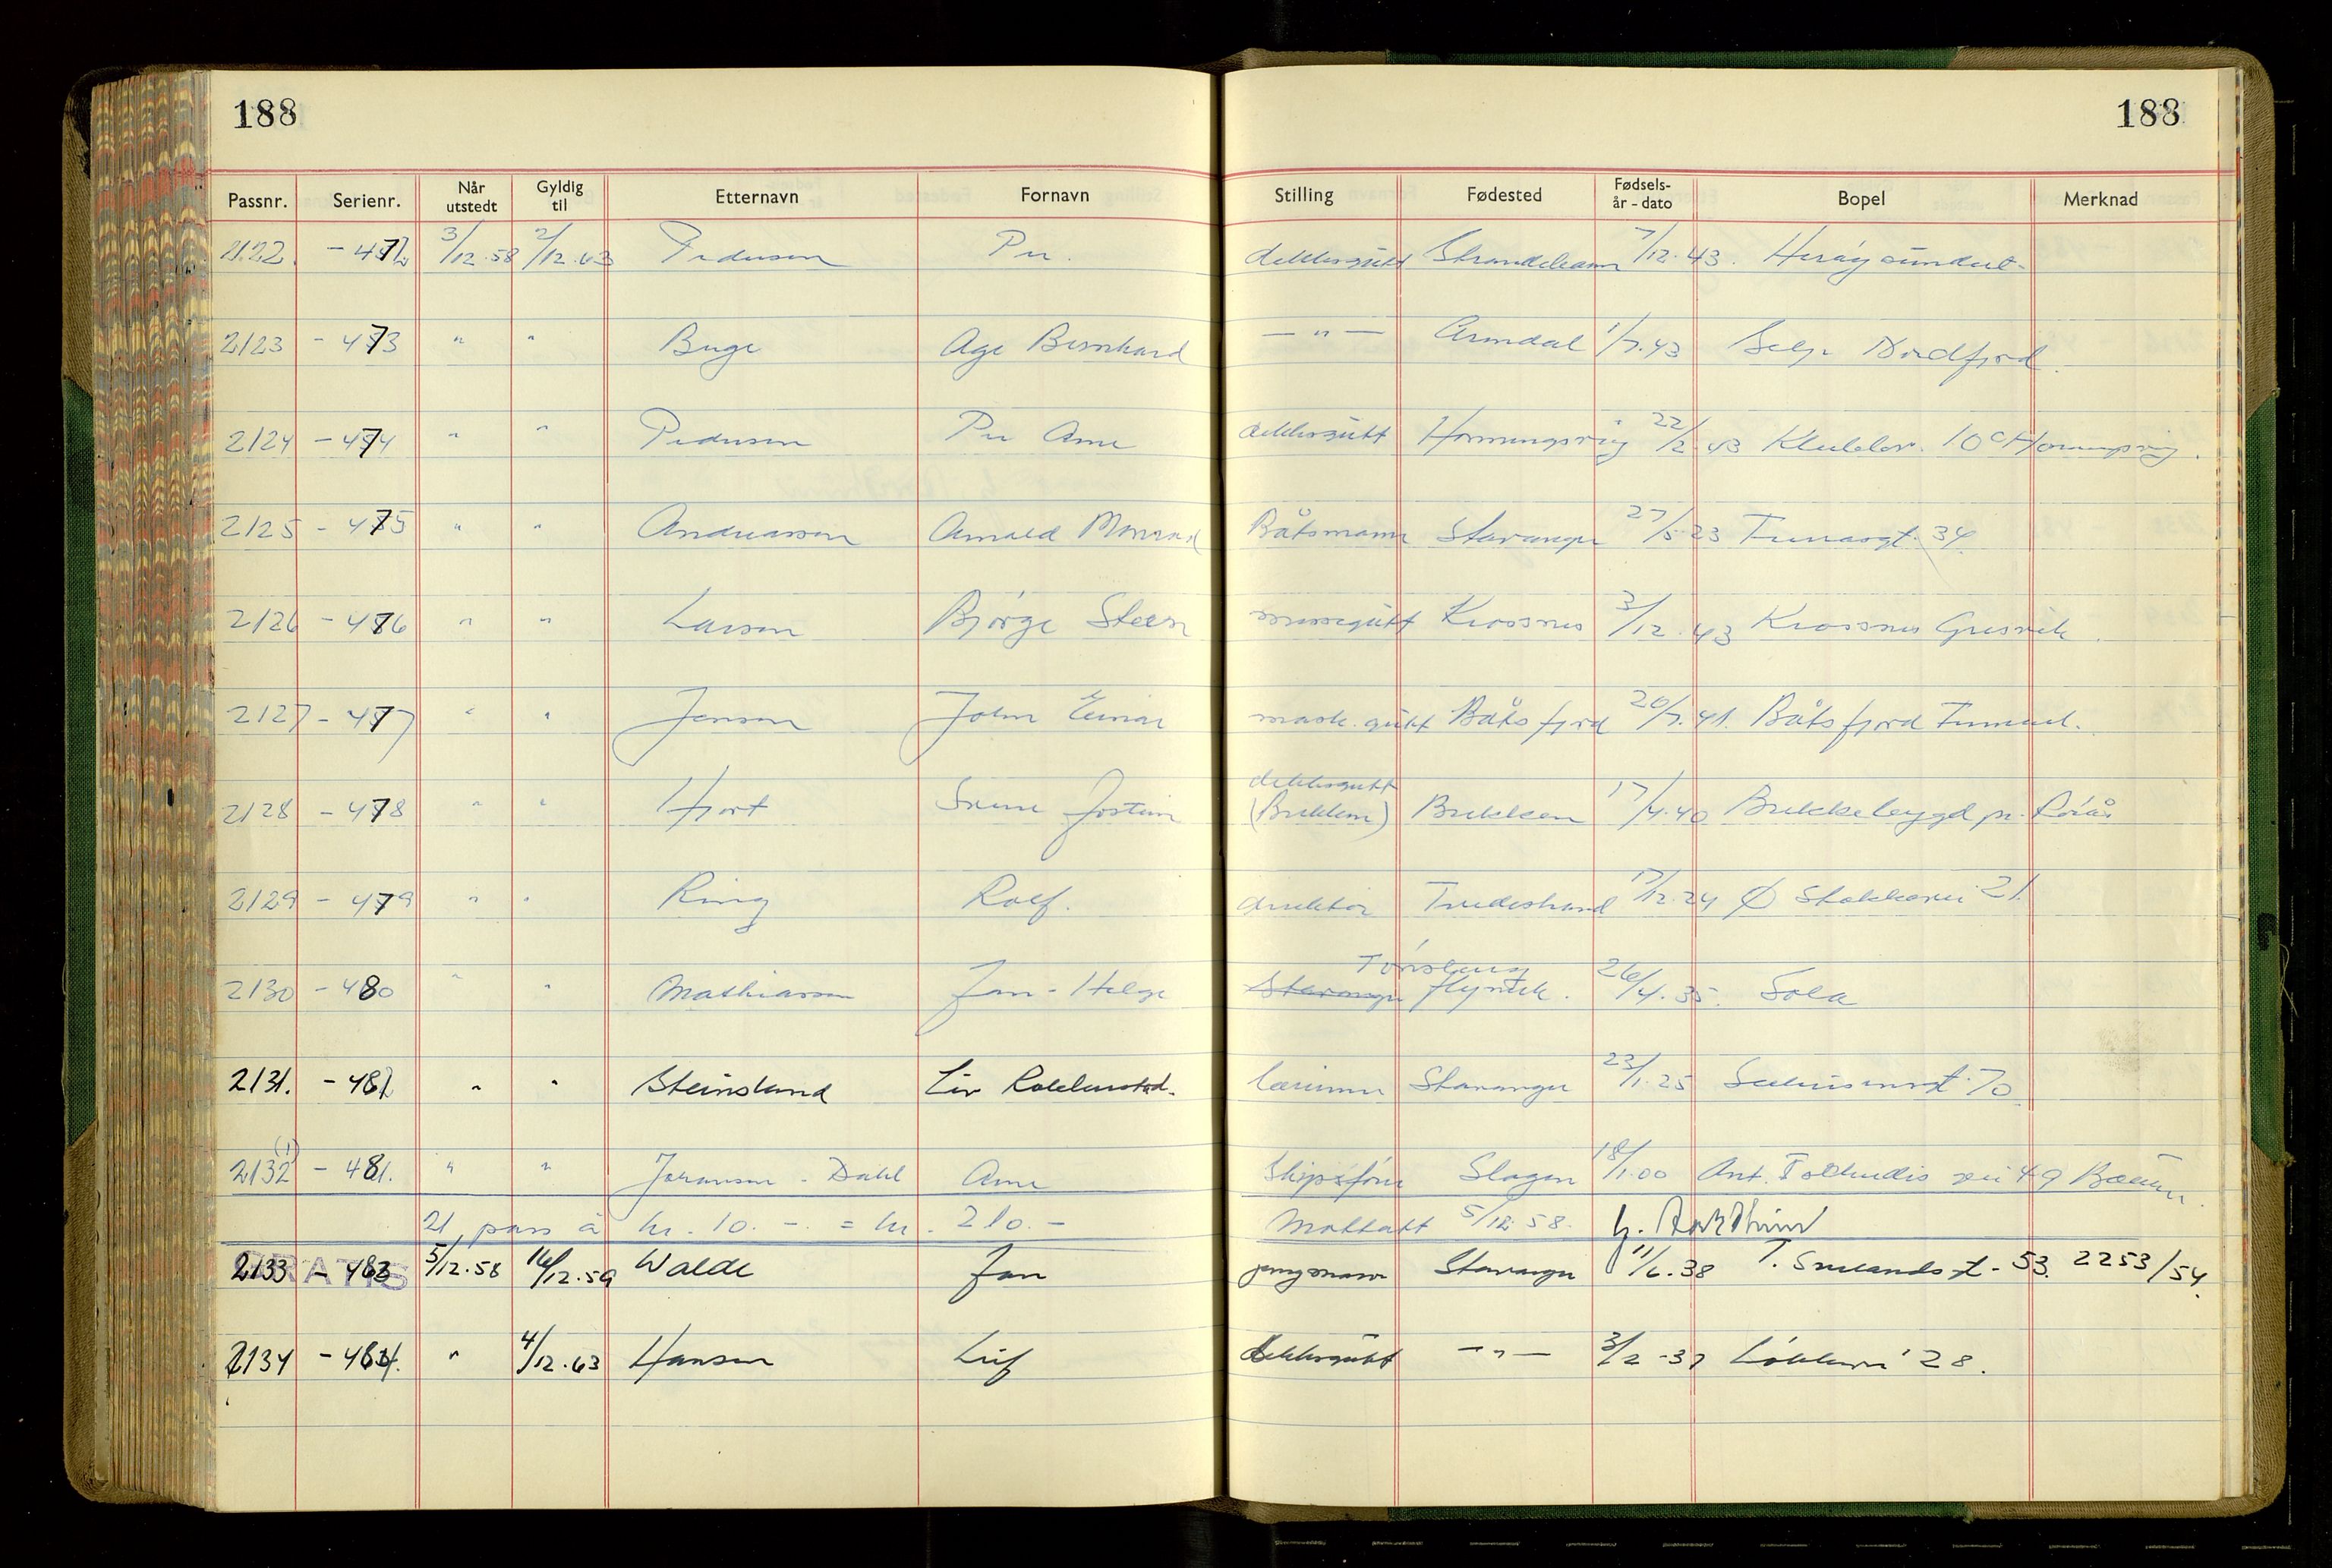 188 188
Passnr. Serienr. Når utstedt Gyldig til Etternavn Fornavn Stilling Fødested Fødsels- år - dato Bopel Merknad
2122. - 472 3/12.58 2/12.63 Pedersen Per. dekksgutt 7/12.43. Herøysundet
2123 - 473 " " Buge Åge Bernhard — " — 1/7.43 Selje Nordfjord.
2124 - 474 " " Pedersen Per Arne dekksgutt Honningsvåg 22/2.43 Klubbv. 10c Honningsvåg.
2125 - 475 " " Andreassen Arnold Monrad Båtsmann Stavanger 27/5-23 34.
2126 - 476 " " Larsen Bjørge Steen messegutt Krossnes 3/12.43 Krossnes Gresvik.
2127 - 477 " " Jensen John Einar mask.gutt Båtsfjord 20/7.41. Båtsfjord Finnm.
2128 - 478 " " Hjort Svein Jostein dekksgutt (Brekken) Brekken 17/4.40 Brekkebygd pr. Røros
2129 - 479 " " Ring Rolf. direktør Tvedestrand 17/12.24 Ø Stokkavei 21.
2130 - 480 " " Mathiassen Jan-Helge Stavanger Tønsberg flyntek. 26/4.35. Sola
2131. - 481 " " Steinsland Liv lærerinne Stavanger 23/1.25 70
2132 (1) - 481. " " Johansen - Dahl Arne Skipsfører Slagen 18/1.00 Ant. vei 49 Bærum.
21 pass à kr. 10.-. = kr. 210.- Mottatt 5/12.58.
GRATIS
2133 - 483 5/12.58 16/12.59 Walde Jan jungmann Stavanger 11/6.38 53. 2253/54.
2134 - 484. " 4/12.63 Hansen Leif dekksgutt — " — 3/2-37 Løkkevei 28.